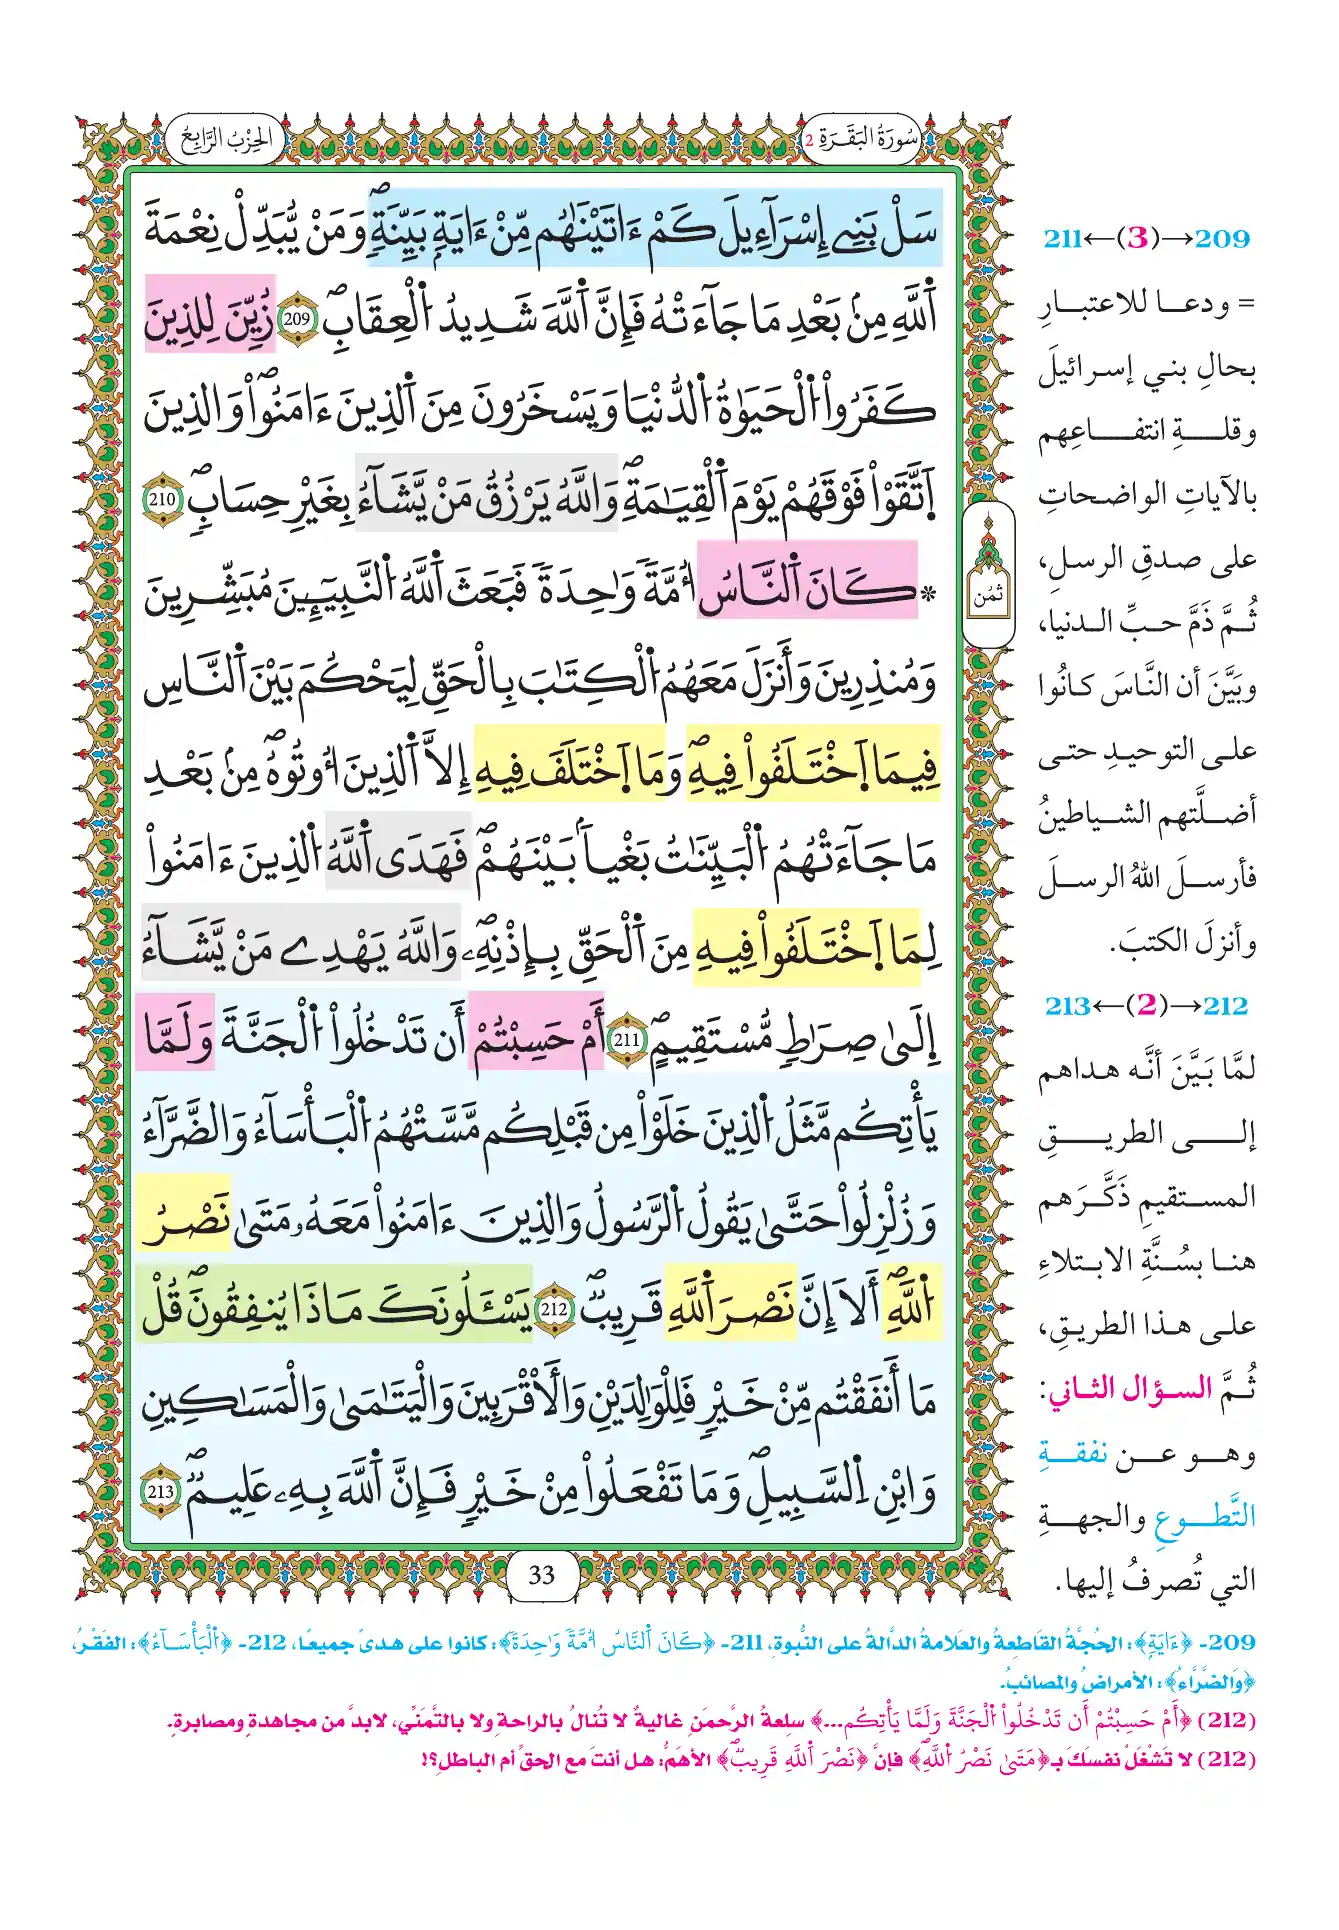 سُورَةُ البَقَرَةِ 2
الحِزْبُ الرَّابِعُ
سَلْ بَنِے إِسْرَآءِيلَ كَمْ ءَاتَيْنَٰهُم مِّنْ ءَايَةِۢ بَيِّنَةٖۖ وَمَنْ يُّبَدِّلْ نِعْمَةَ
اَ۬للَّهِ مِنۢ بَعْدِ مَا جَآءَتْهُ فَإِنَّ اَ۬للَّهَ شَدِيدُ اُ۬لْعِقَابِۖ 209 زُيِّنَ لِلذِينَ
كَفَرُواْ اُ۬لْحَيَوٰةُ اُ۬لدُّنْيَا وَيَسْخَرُونَ مِنَ اَ۬لذِينَ ءَامَنُواْۖ وَالذِينَ
اَ۪تَّقَوْاْ فَوْقَهُمْ يَوْمَ اَ۬لْقِيَٰمَةِۖ وَاللَّهُ يَرْزُقُ مَنْ يَّشَآءُ بِغَيْرِ حِسَابٖۖ 210
* كَانَ اَ۬لنَّاسُ أُمَّةٗ وَٰحِدَةٗ فَبَعَثَ اَ۬للَّهُ اُ۬لنَّبِيٓـِٕينَ مُبَشِّرِينَ
وَمُنذِرِينَ وَأَنزَلَ مَعَهُمُ اُ۬لْكِتَٰبَ بِالْحَقِّ لِيَحْكُمَ بَيْنَ اَ۬لنَّاسِ
فِيمَا اَ۪خْتَلَفُواْ فِيهِۖ وَمَا اَ۪خْتَلَفَ فِيهِ إِلاَّ اَ۬لذِينَ أُوتُوهُۖ مِنۢ بَعْدِ
مَا جَآءَتْهُمُ اُ۬لْبَيِّنَٰتُ بَغْياَۢ بَيْنَهُمْۖ فَهَدَى اَ۬للَّهُ اُ۬لذِينَ ءَامَنُواْ
لِمَا اَ۪خْتَلَفُواْ فِيهِ مِنَ اَ۬لْحَقِّ بِإِذْنِهِۦۖ وَاللَّهُ يَهْدِے مَنْ يَّشَآءُ
إِلَىٰ صِرَٰطٖ مُّسْتَقِيمٍۖ 211 أَمْ حَسِبْتُمْ أَن تَدْخُلُواْ اُ۬لْجَنَّةَ وَلَمَّا
يَأْتِكُم مَّثَلُ اُ۬لذِينَ خَلَوْاْ مِن قَبْلِكُم مَّسَّتْهُمُ اُ۬لْبَأْسَآءُ وَالضَّرَّآءُ
وَزُلْزِلُواْ حَتَّىٰ يَقُولُ اُ۬لرَّسُولُ وَالذِينَ ءَامَنُواْ مَعَهُۥ مَتَىٰ نَصْرُ
اُ۬للَّهِۖ أَلَا إِنَّ نَصْرَ اَ۬للَّهِ قَرِيبٞۖ 212 يَسْـَٔلُونَكَ مَاذَا يُنفِقُونَۖ قُلْ
مَا أَنفَقْتُم مِّنْ خَيْرٖ فَلِلْوَٰلِدَيْنِ وَالَاقْرَبِينَ وَالْيَتَٰمَىٰ وَالْمَسَٰكِينِ
وَابْنِ اِ۬لسَّبِيلِۖ وَمَا تَفْعَلُواْ مِنْ خَيْرٖ فَإِنَّ اَ۬للَّهَ بِهِۦ عَلِيمٞۖ 213
ثُمُن
33
209→(3)←211
= ودعا للاعتبارِ
بحالِ بني إسرائيلَ
وقلةِ انتفاعِهم
بالآياتِ الواضحاتِ
على صدقِ الرسلِ،
ثُمَّ ذَمَّ حبِّ الدنيا،
وبَيَّنَ أن النَّاسَ كانُوا
على التوحيدِ حتى
أضلَّتهم الشياطينُ
فأرسلَ اللهُ الرسلَ
وأنزلَ الكتبَ.
212→(2)←213
لمَّا بَيَّنَ أنَّه هداهم
إلى الطريقِ
المستقيمِ ذَكَّرَهم
هنا بسُنَّةِ الابتلاءِ
على هذا الطريقِ،
ثُمَّ السؤال الثاني:
وهو عن نفقةِ
التَّطوعِ والجهةِ
التي تُصرفُ إليها.
209- ﴿ءَايَةِۢ﴾: الحُجَّةُ القَاطِعةُ والعَلامةُ الدَّالةُ على النُّبوةِ، 211- ﴿كَانَ اَ۬لنَّاسُ أُمَّةٗ وَٰحِدَةٗ﴾: كانوا على هدىً جميعًا، 212- ﴿اُ۬لْبَأْسَآءُ﴾: الفَقْرُ،
﴿وَالضَّرَّآءُ﴾: الأمراضُ والمصائبُ.
(212) ﴿أَمْ حَسِبْتُمْ أَن تَدْخُلُواْ اُ۬لْجَنَّةَ وَلَمَّا يَأْتِكُم...﴾ سلعةُ الرَّحمَنِ غاليةٌ لا تُنالُ بالراحةِ ولا بالتَّمَنِّي، لابدَّ من مجاهدةٍ ومصابرةٍ.
(212) لا تَشْغَلْ نفسَكَ بـ﴿مَتَىٰ نَصْرُ اُ۬للَّهِۖ﴾ فإنَّ ﴿نَصْرَ اَ۬للَّهِ قَرِيبٞۖ﴾ الأهَمُّ: هل أنتَ مع الحقِّ أم الباطلِ؟!